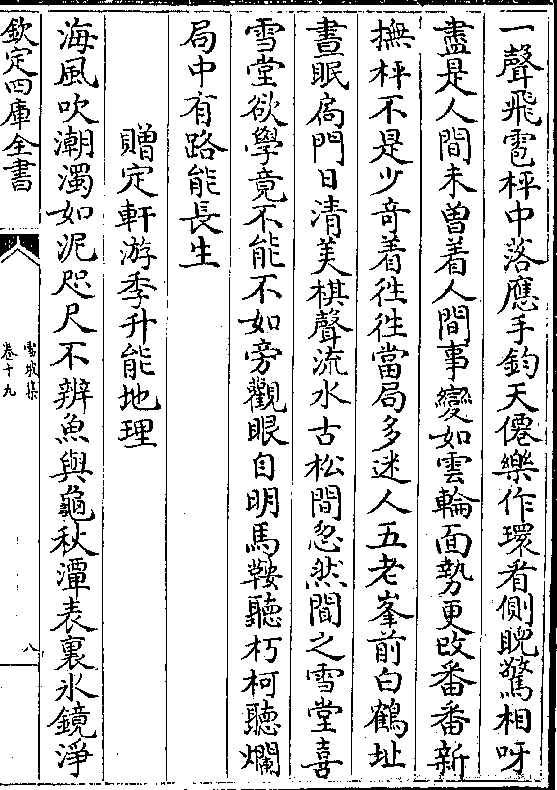 一聲飛雹枰中落應手鈞天僊樂作環看側睨驚相呀
盡是人間未曾着人間事變如雲輪面勢更改番番新
撫枰不是少奇着徃徃當局多迷人五老峯前白鶴址
晝眠扄門日清美棋聲流水古松間忽然聞之雪堂喜
雪堂欲學竟不能不如旁觀眼自明馬鞍聽朽柯聽爛
局中有路能長生
贈定軒游季升能地理
海風吹潮濁如泥咫尺不辨魚與龜秋潭表裏氷鏡淨
欽定四庫全書
雪坡集
卷十九
八